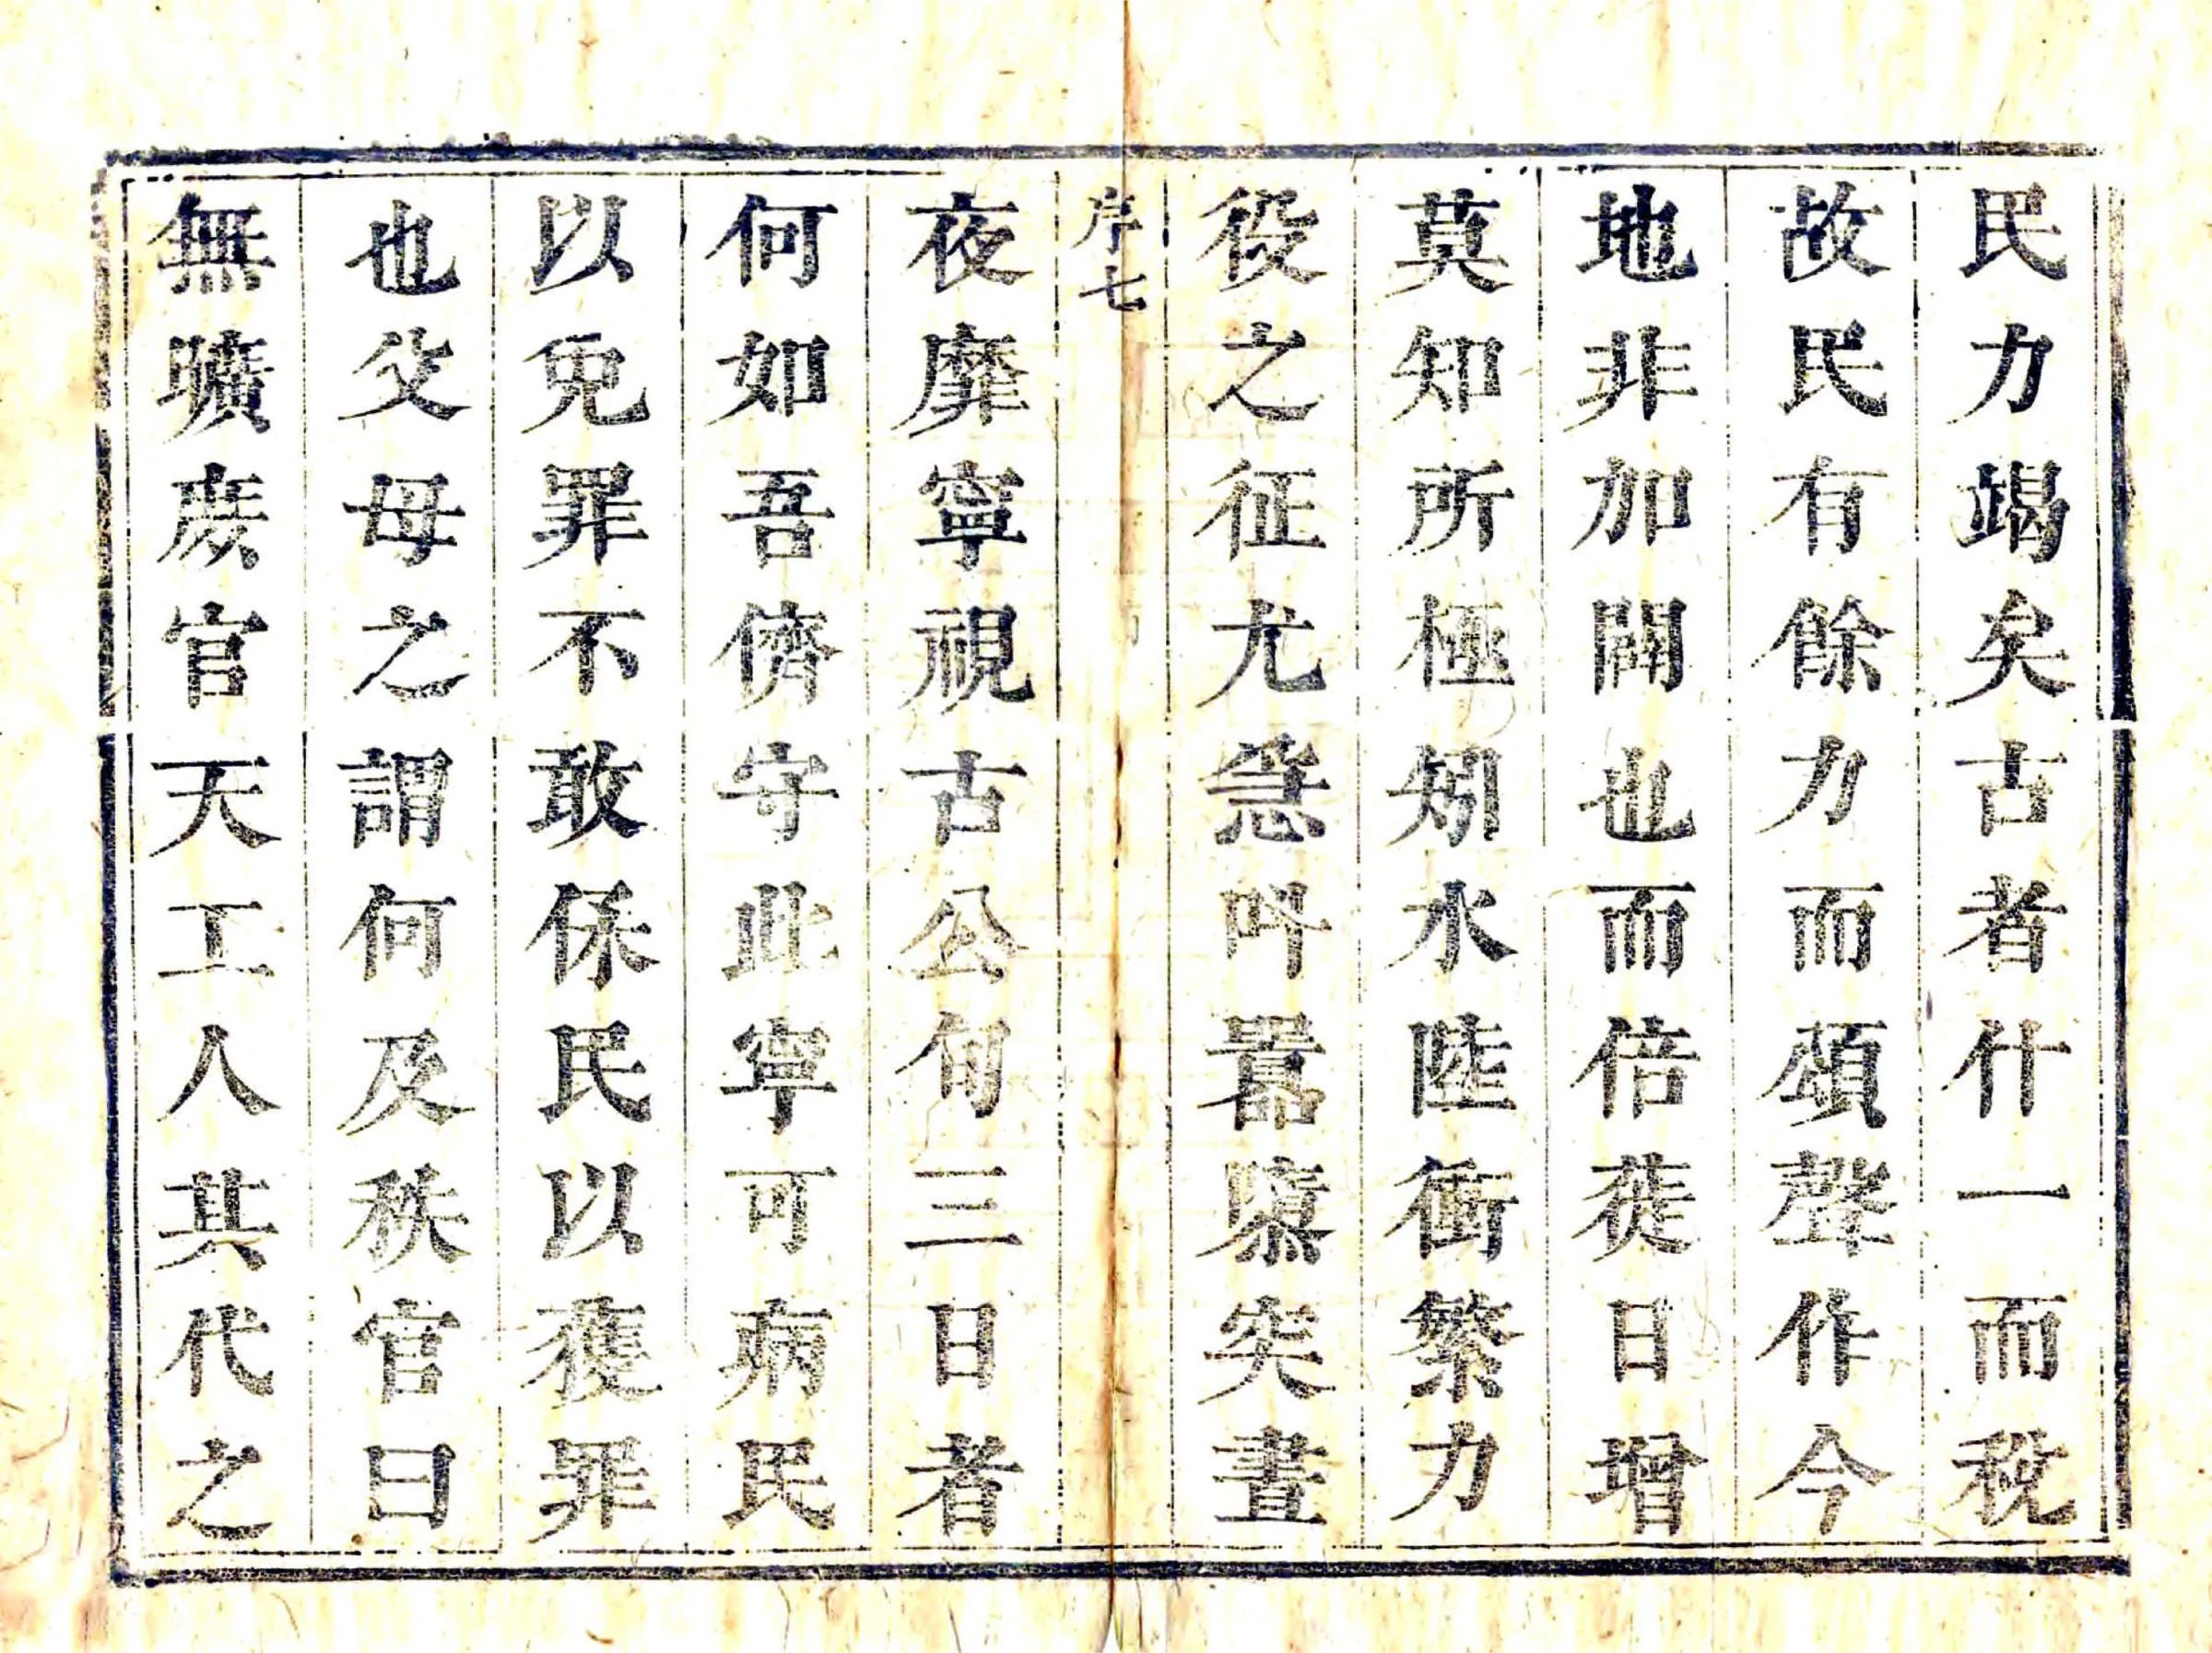 民力竭矣古者什一而稅
故民有餘力而頌聲作今
地非加闢也而倍蓰日增
莫知所極矧水陸衝繁力
役之征尤急呌囂隳突晝
序七
夜靡寧視古公旬三日者
何如吾儕守此寧可病民
以免罪不敢保民以獲罪
也父母之謂何及秩官曰
無曠庶官天工人其代之